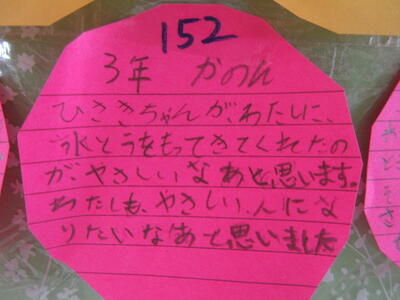 152
3年 かのん
ひさきちゃんが、わたしに、
水とうをもってきてくれたの
が、やさしいなあと思います。
わたしも、やさしい、人にな
りたいなあと思いました